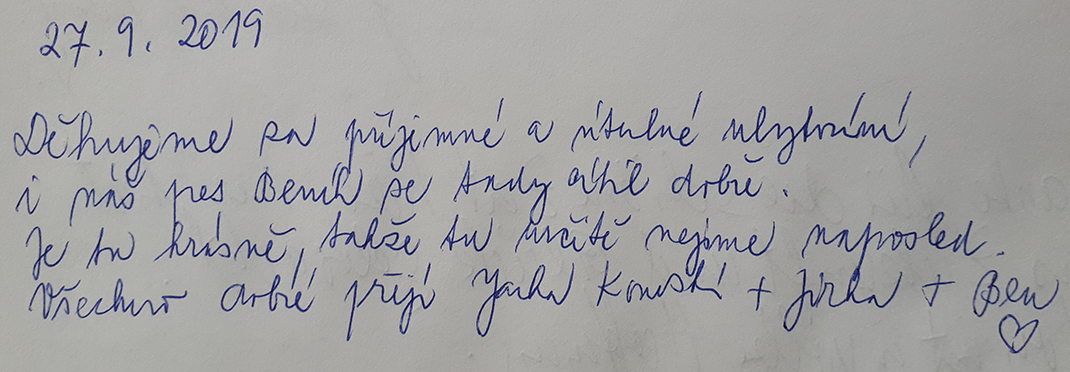 27. 9. 2019
Děkujeme za příjemné a útulné ubytování,
i náš pes Beník se tady cítil dobře.
Je tu krásně, takže tu určitě nejsme naposled.
Všechno dobré přejí + Jirka + Ben
♡